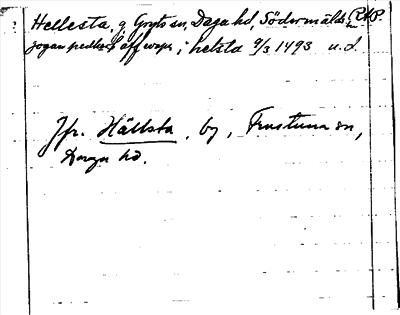 Hellesta, g, Gryts sn, Daga hd, Södermanl. RAP.
jogan pedhers aff wapn i helsta 9/3 1493 u.d.
Jfr. Hällsta, by, Frustuna sn,
Daga hd.